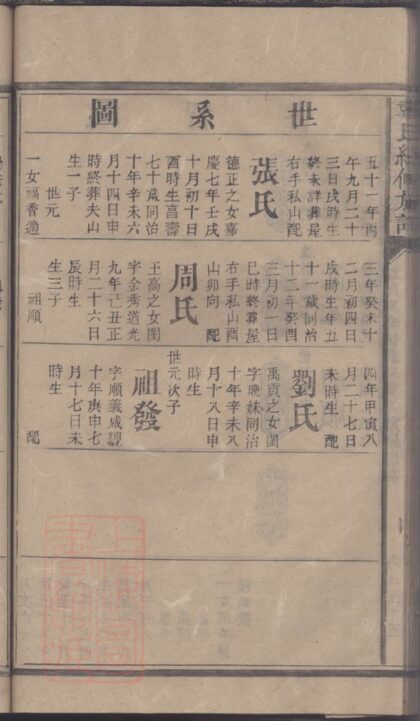 世系圖
五十一年丙
午九月二十
三日戌時生
終未詳葬屋
右手私山配
張氏
德正之女嘉
慶七年壬戌
十月初十日
酉時生高壽
七十歲同治
十年辛未六
月十四日申
時終葬夫山
生一子
世元
一女福香適
三年癸未十
二月初四日
戌時生年五
十一歲同治
十二年癸酉
三月初一日
巳時終葬屋
右手私山酉
山卯向 配
周氏
王高之女閨
字金秀道光
九年己丑正
月二十六日
辰時生
生三子
祖順
四年甲寅八
月二十七日
未時生 配
劉氏
禹貢之女閨
字晚妹同治
十年辛未八
月十八日申
時生
世元次子
祖發
字順義咸豐
十年庚申七
月十七日未
時生 配